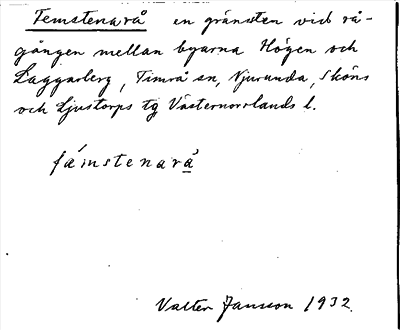 Femstenarå en gränsten vid rå-
gången mellan byarna Högen och
Laggarberg, Timrå sn, Njurunda, Sköns
och Ljustorps tg Västernorrlands l.
fámstenarå
Valter Jansson 1932.